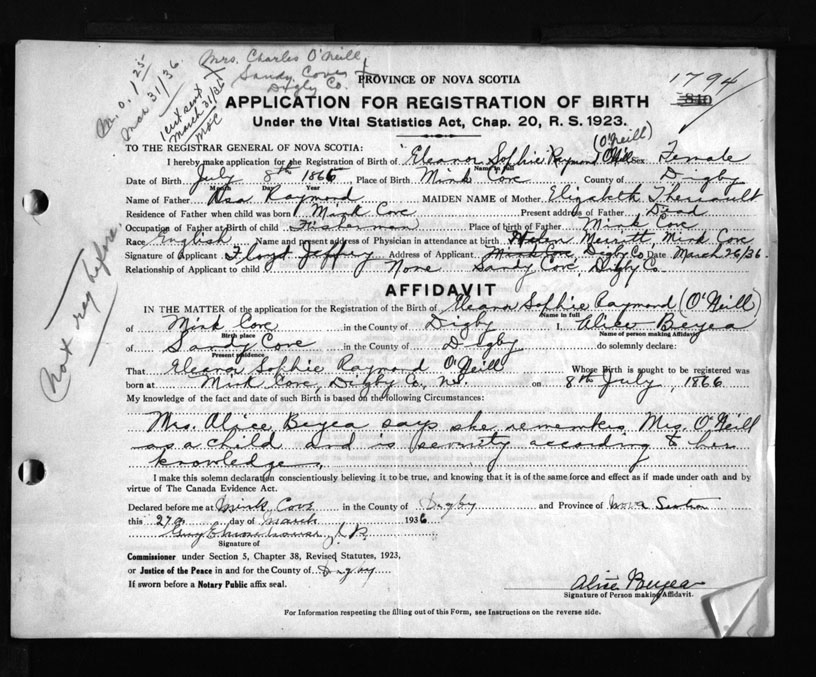 Mrs. Charles O'Neill
Sandy Cove
Digby Co.
M.O. 1 25
Mar 31/36
1 cert sent
March 31/36
Not reg before.
1794
840
PROVINCE OF NOVA SCOTIA
APPLICATION FOR REGISTRATION OF BIRTH
Under the Vital Statistics Act, Chap. 20, R. S. 1923.
TO THE REGISTRAR GENERAL OF NOVA SCOTIA:
(O'Neill)
I hereby make application for the Registration of Birth of Eleanor Sophie Raymond O'Neill Sex Female
Name in full
Date of Birth July 8th 1866 Place of Birth Mink Cove County of Digby
Month Day Year
Name of Father Asa Raymond MAIDEN NAME of Mother Elizabeth Theriault
Residence of Father when child was born Mink Cove Present address of Father Dead
Occupation of Father at Birth of child Fisherman Place of birth of Father Mink Cove
Race English Name and present address of Physician in attendance at birth Helen Merritt, Mink Cove
Signature of Applicant Floyd Jeffry Address of Applicant Mink Cove, Digby Co Date March 26/36.
Relationship of Applicant to child None Sandy Cove, Digby Co.
AFFIDAVIT
IN THE MATTER of the application for the Registration of the Birth of Eleanor Sophie Raymond (O'Neill)
Name in full
of Mink Cove in the County of Digby I, Alice Beyea
Birth place Name of person making Affidavit
of Sandy Cove in the County of Digby do solemnly declare:
Present residence
That Eleanor Sophie Raymond O'Neill Whose Birth is sought to be registered was
born at Mink Cove, Digby Co., N.S. on 8th July, 1866
My knowledge of the fact and date of such Birth is based on the following Circumstances:
Mrs. Alice Beyea says she remembers Mrs. O'Neill
as a child and is seventy according to her
knowledge.
I make this solemn declaration conscientiously believing it to be true, and knowing that it is of the same force and effect as if made under oath and by
virtue of The Canada Evidence Act.
Declared before me at Mink Cove in the County of Digby and Province of Nova Scotia
this 27th day of March 1936
J.P.
Signature of
Commissioner under Section 5, Chapter 38, Revised Statutes, 1923,
or Justice of the Peace in and for the County of Digby
If sworn before a Notary Public affix seal.
Alice Beyea
Signature of Person making Affidavit.
For Information respecting the filling out of this Form, see Instructions on the reverse side.